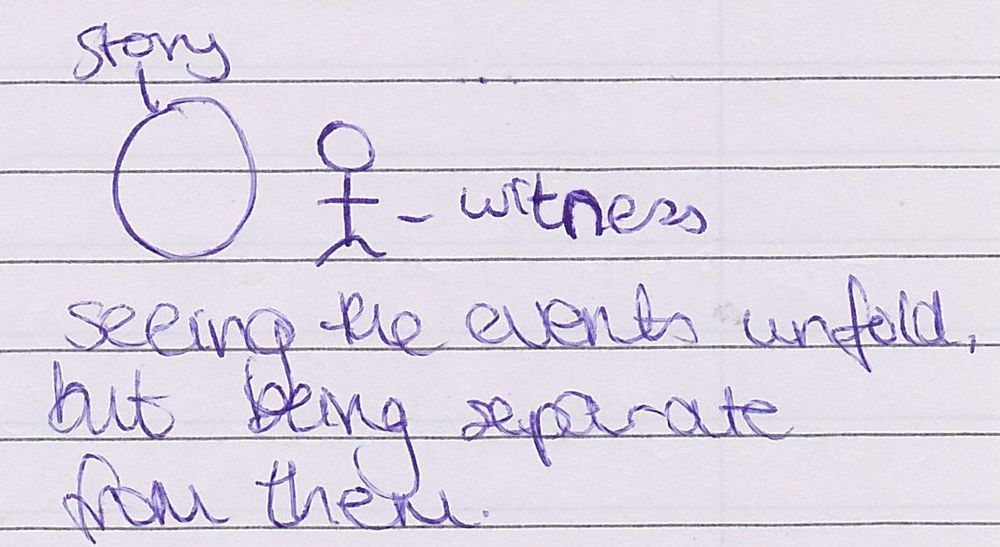 story
- witness
seeing the events unfold,
but being separate
from them.